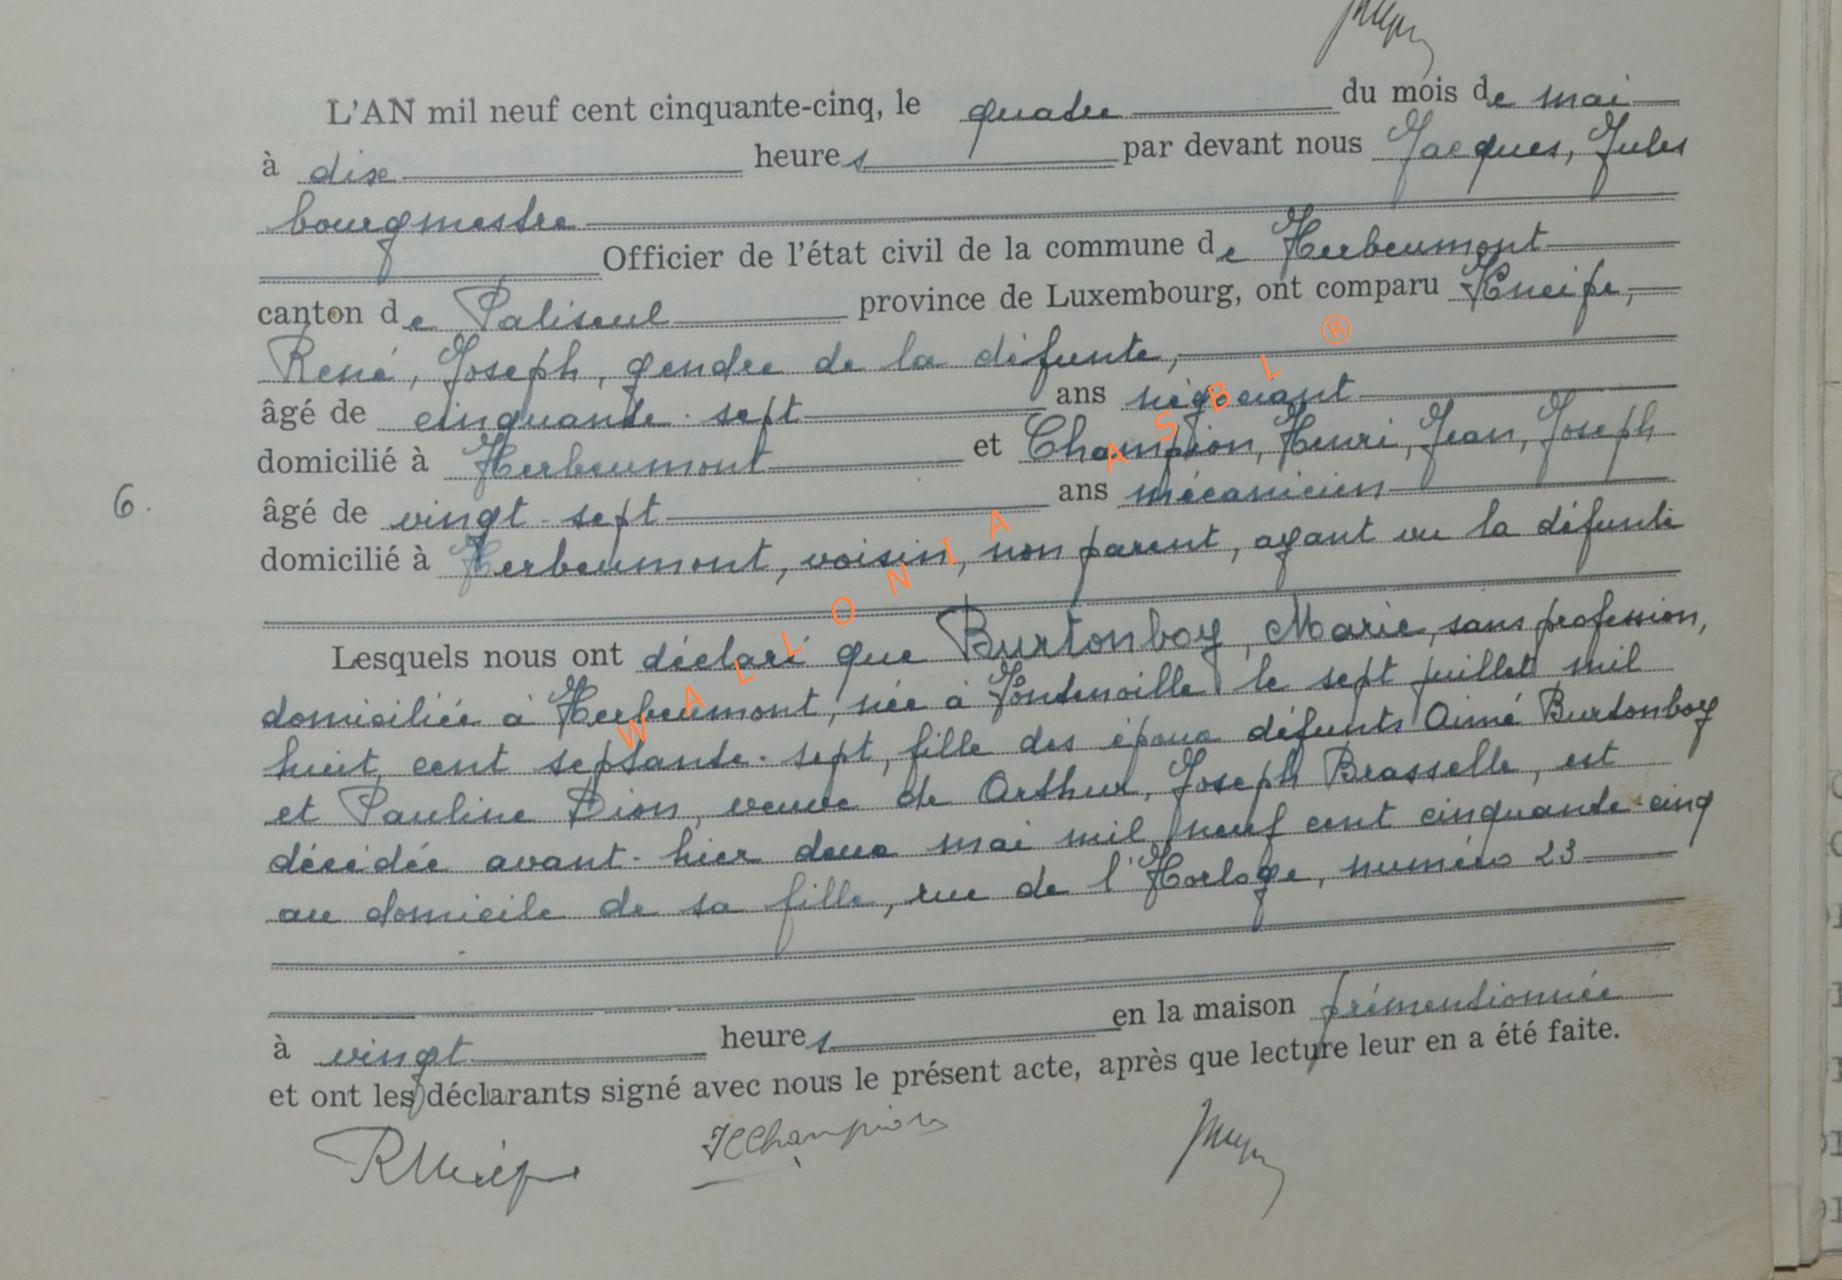 L'AN mil neuf cent cinquante-cinq, le quatre du mois de mai
à dix heures par devant nous Jacques, Jules
bourgmestre
Officier de l'état civil de la commune de Herbeumont
canton de Paliseul province de Luxembourg, ont comparu Kneip,
René, Joseph, gendre de la défunte,
âgé de cinquante-sept ans négociant
domicilié à Herbeumont et Champion, Henri, Jean, Joseph
6. âgé de vingt-sept ans mécanicien
domicilié à Herbeumont, voisin, non parent, ayant vu la défunte
Lesquels nous ont déclaré que Burtonboy, Marie, sans profession,
domiciliée à Herbeumont, née à Fontenoille le sept juillet mil
huit cent septante-sept, fille des époux défunts Aimé Burtonboy
et Pauline Dion, veuve de Arthur, Joseph Brasselle, est
décédée avant-hier deux mai mil neuf cent cinquante-cinq
au domicile de sa fille, rue de l'Horloge, numéro 23
à vingt heures en la maison prémentionnée
et ont les déclarants signé avec nous le présent acte, après que lecture leur en a été faite.
RKneip HChampion
WALLONIA ASBL ®